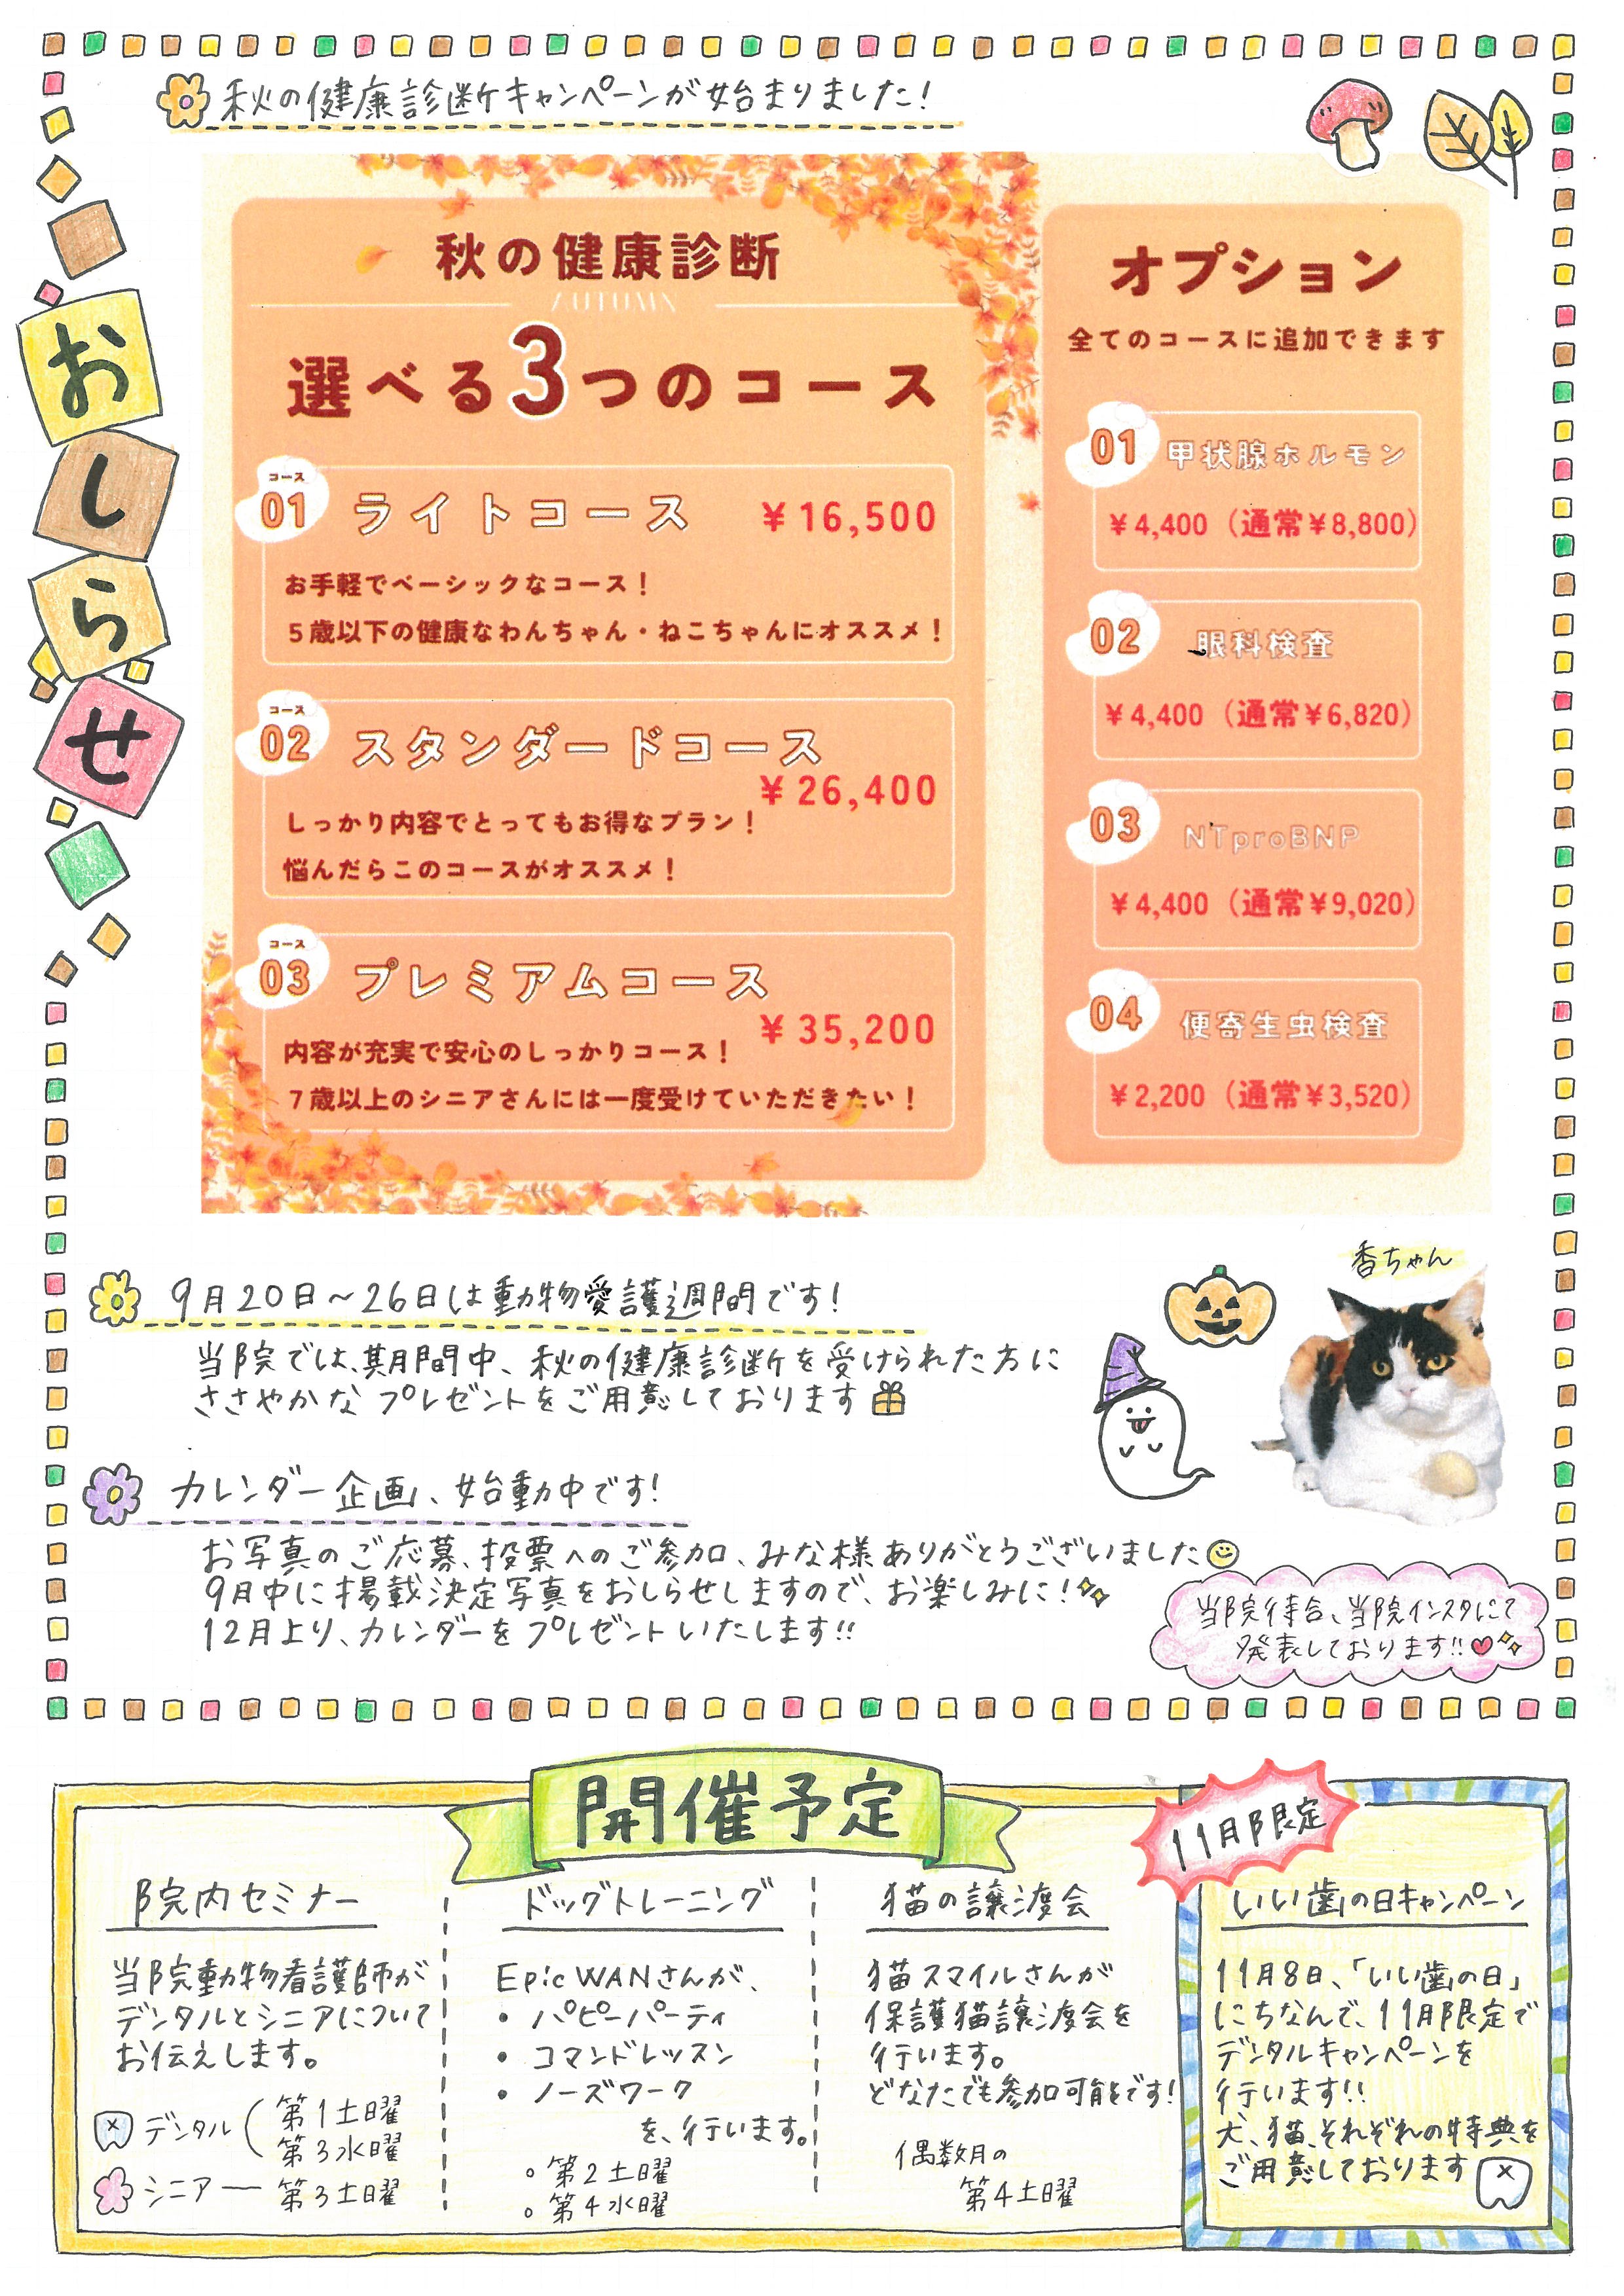 秋の健康診断キャンペーンが始まりました!
おしらせ
秋の健康診断
AUTUMN
選べる3つのコース
コース
01
ライトコース
¥16,500
お手軽でベーシックなコース!
5歳以下の健康なわんちゃん・ねこちゃんにオススメ!
コース
02
スタンダードコース
¥26,400
しっかり内容でとってもお得なプラン!
悩んだらこのコースがオススメ!
コース
03
プレミアムコース
¥35,200
内容が充実で安心のしっかりコース!
7歳以上のシニアさんには一度受けていただきたい!
オプション
全てのコースに追加できます
01
甲状腺ホルモン
¥4,400(通常¥8,800)
02
眼科検査
¥4,400(通常¥6,820)
03
NTproBNP
¥4,400(通常¥9,020)
04
便寄生虫検査
¥2,200(通常¥3,520)
9月20日~26日は動物愛護週間です!
当院では、期間中、秋の健康診断を受けられた方に
ささやかなプレゼントをご用意しております
香ちゃん
カレンダー企画、始動中です!
お写真のご応募、投票へのご参加、みな様ありがとうございました
9月中に掲載決定写真をおしらせしますので、お楽しみに!
12月上り、カレンダーをプレゼントいたします!!
当院待合、当院インスタにて
発表しております!!
開催予定
院内セミナー
当院動物看護師が
デンタルとシニアについて
お伝えします。
デンタル
第1土曜
第3水曜
シニア
第3土曜
ドッグトレーニング
Epic WANさんが、
・パピーパーティ
・コマンドレッスン
・ノーズワーク
を、行います。
。第2土曜
。第4水曜
猫の譲渡会
猫スマイルさんが
保護猫譲渡会を
行います。
どなたでも参加可能です!
偶数月の
第4土曜
11月限定
いい歯の日キャンペーン
11月8日、「いい歯の日」
にちなんで、11月限定で
デンタルキャンペーンを
行います!!
犬、猫、それぞれの特典を
ご用意しております